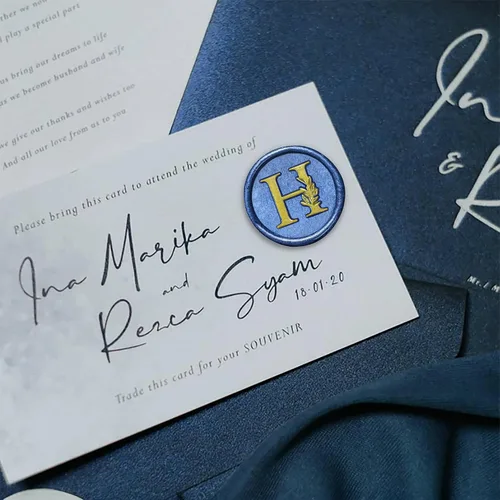 we no
play a special part
us bring our dreams to life
as we become husband and wife
we give our thanks and wishes too
And all our love from us to you
Please bring this card to attend the wedding of
H
Ina Marika
and
Rezca Syam
18·01·20
Trade this card for your SOUVENIR
In
&
R